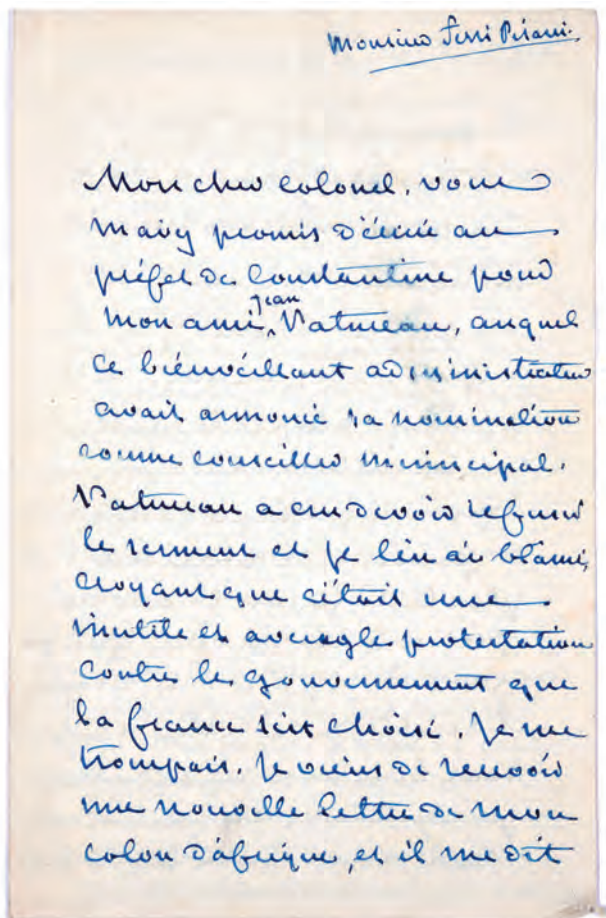 Monsieur Ferri Pisani.
Mon cher colonel, vous
m'avez promis d'écrire au
préfet de Constantine pour
mon ami jean Patureau, auquel
ce bienveillant administrateur
avait annoncé sa nomination
comme conseiller municipal.
Patureau a cru devoir refuser
le serment et je l'en ai blâmé,
croyant que c'était une
inutile et aveugle protestation
contre le gouvernement que
la france s'est choisi. Je me
trompais. Je viens de recevoir
une nouvelle lettre de mon
colon d'afrique, et il me dit